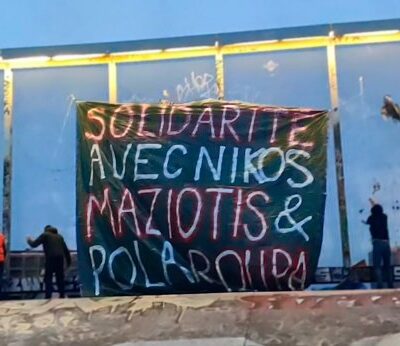 SOLIDARITE
AVEC NIKOS
MAZIOTIS &
POLA ROUPA